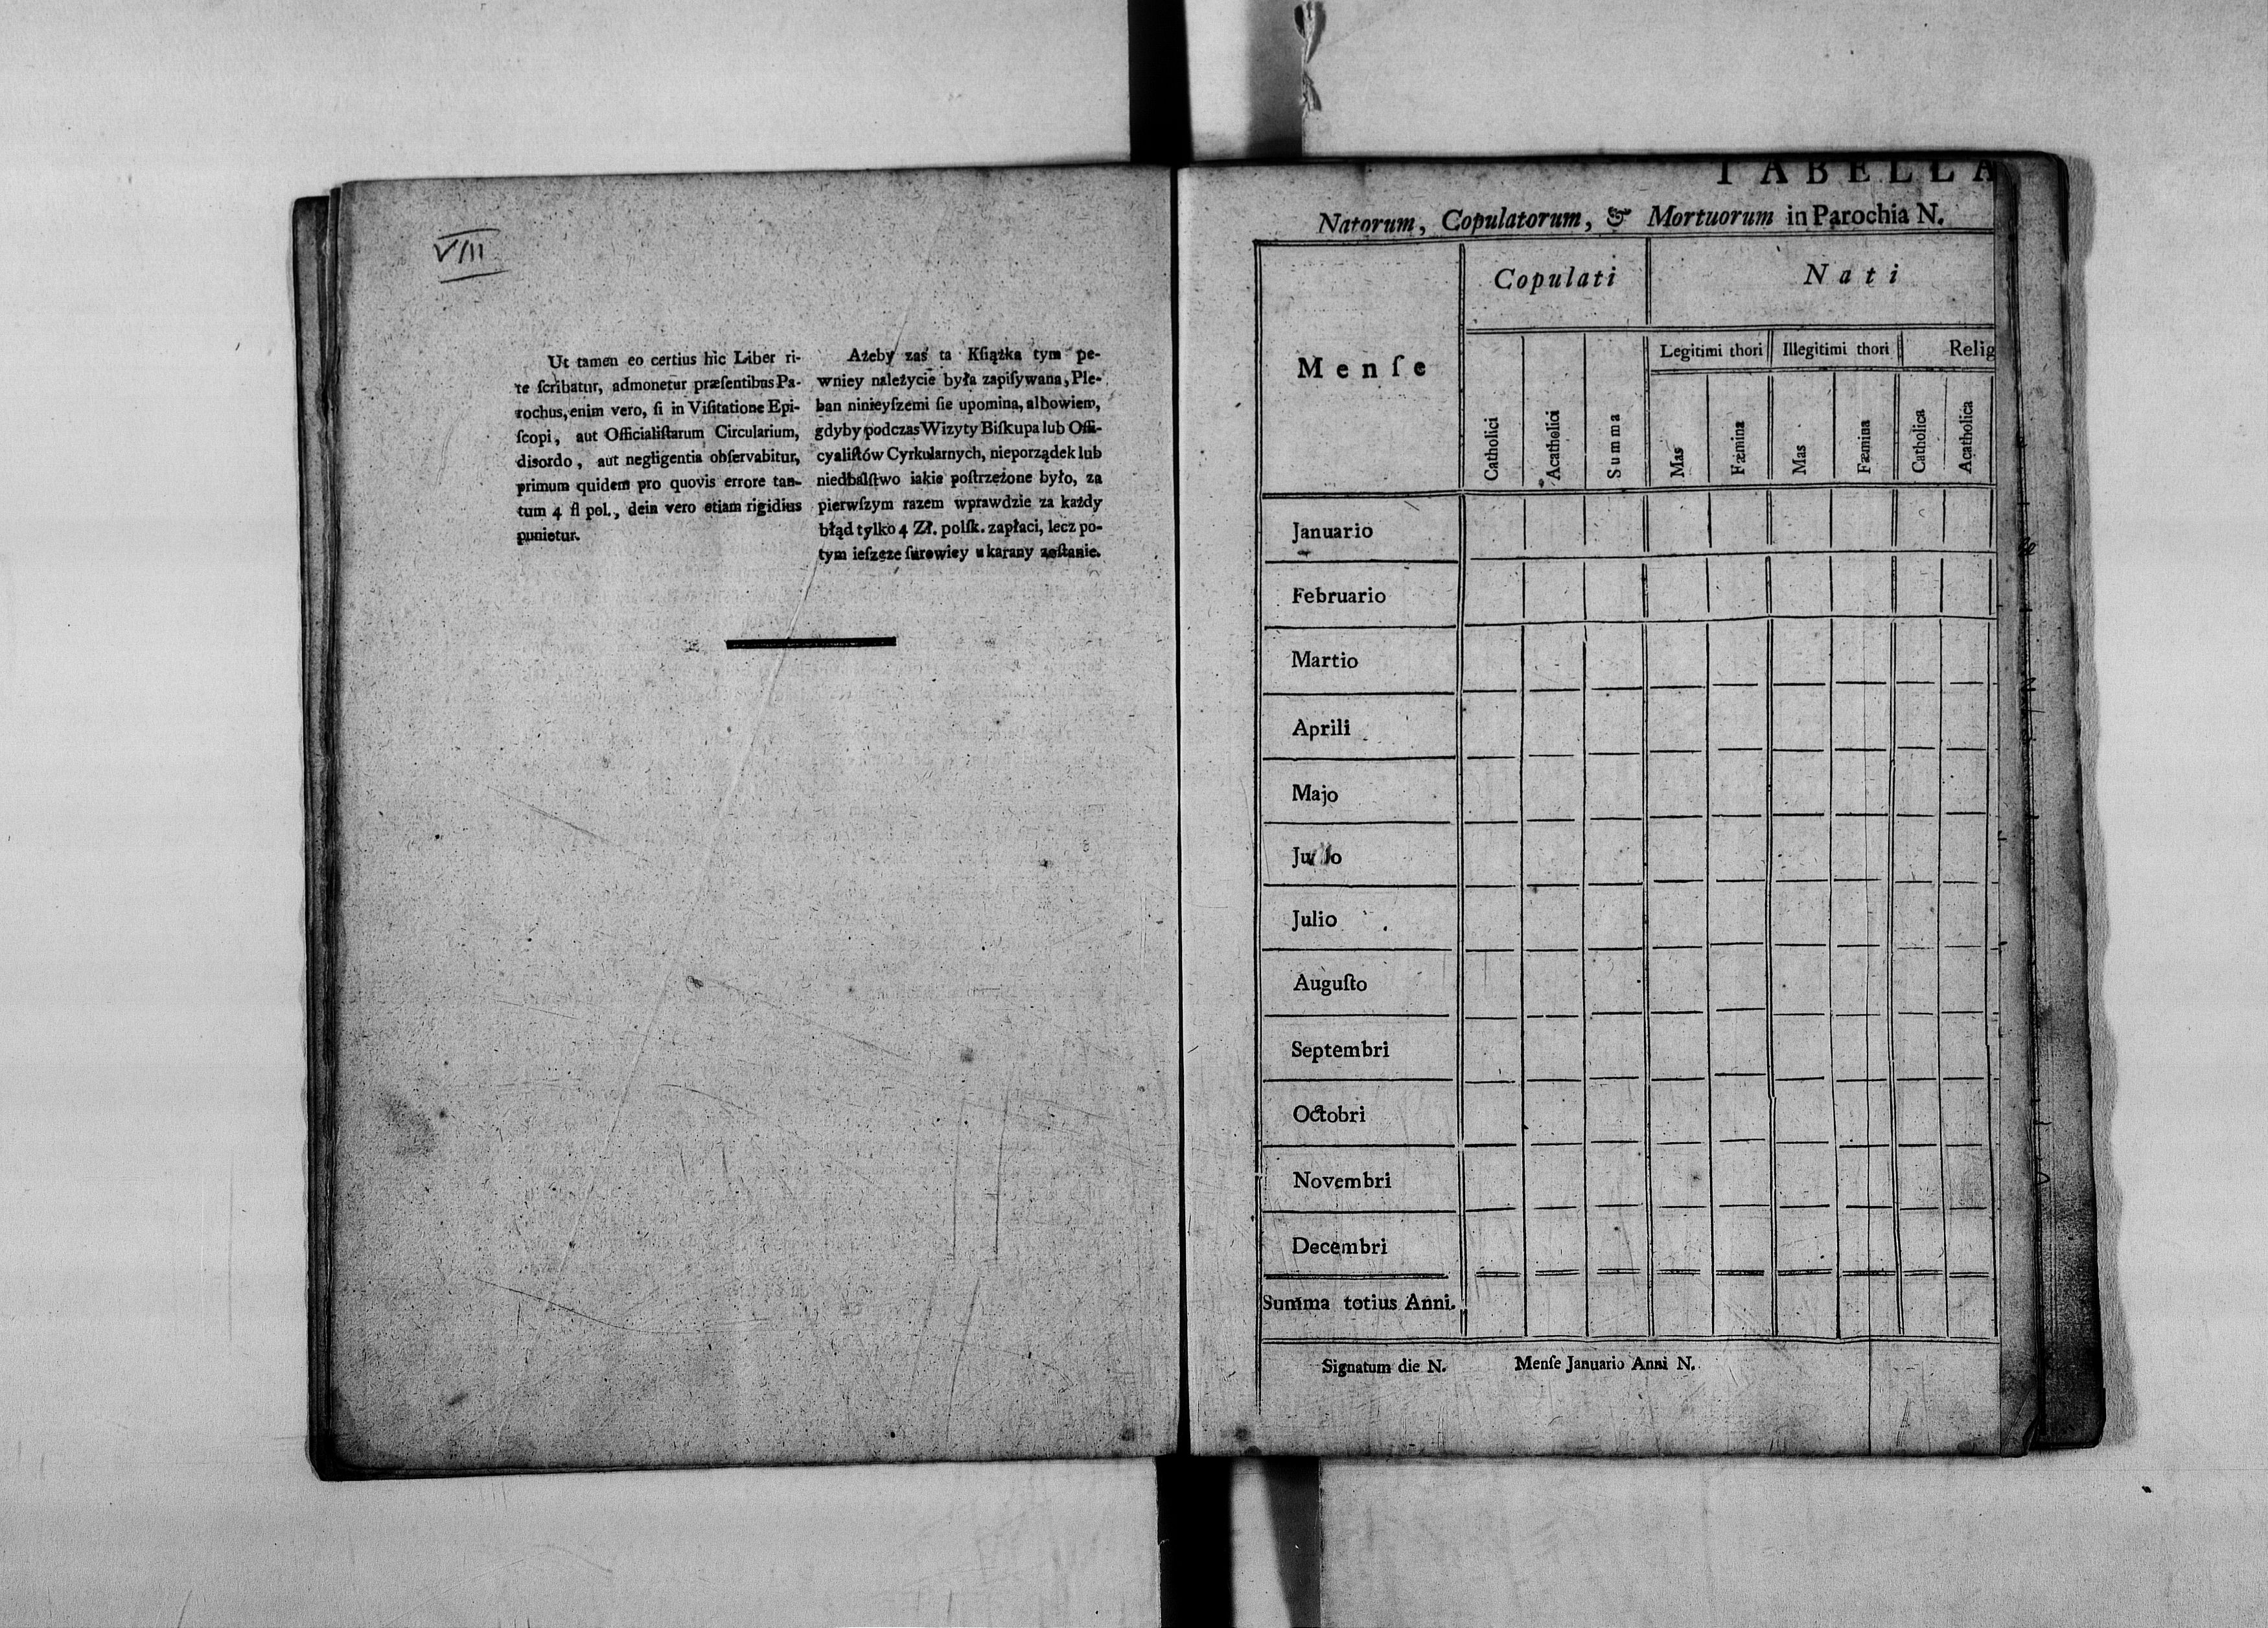 VIII
Ut tamen eo certius hic Liber ri-
te ſcribatur, admonetur præſentibus Pa-
rochus, enim vero, ſi in Viſitatione Epi-
ſcopi, aut Officialiſtarum Circularium,
disordo, aut negligentia obſervabitur,
primum quidem pro quovis errore tan-
tum 4 fl pol., dein vero etiam rigidius
punietur.
Ażeby zaś ta Kſiążka tym pe-
wniey należycie była zapiſywana, Ple-
ban ninieyſzemi ſie upomina, albowiem,
gdyby podczas Wizyty Biſkupa lub Offi-
cyaliſtów Cyrkularnych, nieporządek lub
niedbalſtwo iakie poſtrzeżone było, za
pierwſzym razem wprawdzie za każdy
błąd tylko 4 Zł. polſk. zapłaci, lecz po-
tym ieſzcze ſurowiey ukarany zoſtanie.
TABELLA
Natorum, Copulatorum, & Mortuorum in Parochia N.
Menſe
Copulati
Nati
Legitimi thori
Illegitimi thori
Relig
Catholici
Acatholici
Summa
Mas
Fæmina
Mas
Fæmina
Catholica
Acatholica
Januario
Februario
Martio
Aprili
Majo
Julio
Auguſto
Septembri
Octobri
Novembri
Decembri
Summa totius Anni.
Signatum die N. Menſe Januario Anni N.